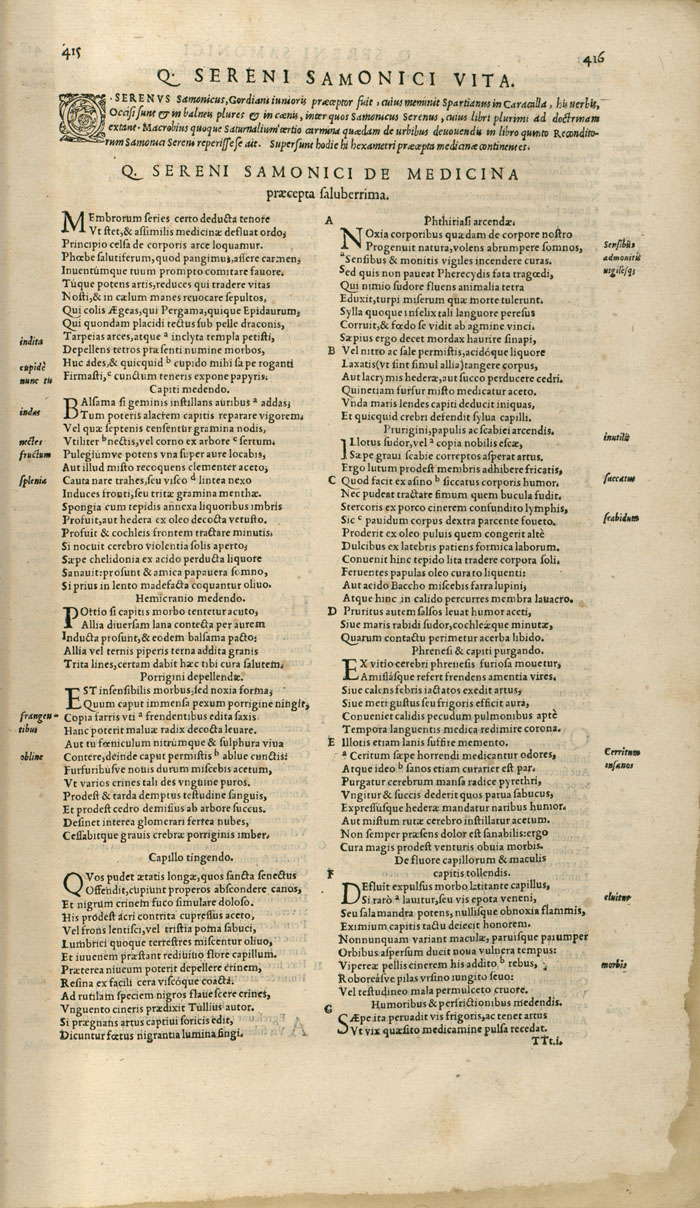 415
416
Q. SERENI SAMONICI VITA.
Q. SERENVS Samonicus, Gordiani iunioris præceptor fuit, cuius meminit Spartianus in Caracalla, his verbis,
Occisi sunt & in balneu plures & in cœnis, inter quos Samonicus Serenus, cuius libri plurimi ad doctrinam
extant. Macrobius quoque Saturnalium tertio carmina quædam de urbibus deuouendis in libro quinto Recondito-
rum Samonici Sereni reperisse se ait. Supersunt hodie hi hexametri præcepta medicinæ continentes.
Q. SERENI SAMONICI DE MEDICINA
præcepta saluberrima.
MEmbrorum series certo deducta tenore
Vt stet, & assimilis medicinæ defluat ordo,
Principio celsa de corporis arce loquamur.
Phœbe salutiferum, quod pangimus, assere carmen,
Inuentúmque tuum prompto comitare fauore.
Túque potens artis, reduces qui tradere vitas
Nosti, & in cælum manes reuocare sepultos,
Qui colis Ægeas, qui Pergama, quique Epidaurum,
Qui quondam placidi tectus sub pelle draconis,
indita
Tarpeias arces, atque a inclyta templa petisti,
Depellens tetros præsenti numine morbos,
cupidè
Huc ades, & quicquid b cupido mihi sæpe roganti
nunc tu
Firmasti, c cunctum teneris expone papyris.
Capiti medendo.
BAlsama si geminis instillans auribus a addas,
indas
Tum poteris alacrem capitis reparare vigorem.
Vel quæ septenis censentur gramina nodis,
nectes
Vtiliter b nectis, vel corno ex arbore c sertum.
fructum
Pulegiúmve potens vna super aure locabis,
Aut illud misto recoquens clementer aceto,
splenia
Cauta nare trahes, seu visco d lintea nexo
Induces fronti, seu tritæ gramina menthæ.
Spongia cum tepidis annexa liquoribus imbris
Profuit, aut hedera ex oleo decocta vetusto.
Profuit & cochleis frontem tractare minutis.
Si nocuit cerebro violentia solis aperto,
Sæpe chelidonia ex acido perducta liquore
Sanauit: prosunt & amica papauera somno,
Si prius in lento madefacta coquantur oliuo.
Hemicranio medendo.
POrtio si capitis morbo tentetur acuto,
Allia diuersam lana contecta per aurem
Inducta prosunt, & eodem balsama pacto;
Allia vel ternis piperis terna addita granis
Trita lines, certam dabit hæc tibi cura salutem.
Porrigini depellendæ.
EST insensibilis morbus, sed noxia forma,
Quum caput immensa pexum porrigine ningit,
frangen-
tibus
Copia farris vti a frendentibus edita saxis
Hanc poterit maluæ radix decocta leuare.
Aut tu fœniculum nitrúmque & sulphura viua
obline
Contere, deinde caput permistis b ablue cunctis:
Furfuribusve nouis durum miscebis acetum,
Vt varios crines tali des vnguine puros.
Prodest & tarda demptus testudine sanguis,
Et prodest cedro demissus ab arbore succus.
Desinet interea glomerari fertea nubes,
Cessabitque grauis crebræ porriginis imber.
Capillo tingendo.
QVos pudet ætatis longæ, quos sancta senectus
Offendit, cupiunt properos abscondere canos,
Et nigrum crinem fuco simulare doloso.
His prodest acri contrita cupressus aceto,
Vel frons lentisci, vel tristia poma sabuci,
Lumbrici quoque terrestres miscentur oliuo,
Et iuuenem præstant rediuiuo flore capillum.
Præterea niueum poterit depellere crinem,
Resina ex facili cera viscóque coacta.
Ad rutilam speciem nigros flauescere crines,
Vnguento cineris prædixit Tullius autor.
Si prægnans artus captiui soricis edit,
Dicuntur fœtus nigrantia lumina fingi.
A
Phthiriasi arcendæ.
NOxia corporibus quædam de corpore nostro
Progenuit natura, volens abrumpere somnos,
Sensibus
admonitis
vigilésq;
a Sensibus & monitis vigiles incendere curas.
Sed quis non paueat Pherecydis fata tragœdi,
Qui nimio sudore fluens animalia tetra
Eduxit, turpi miserum quæ morte tulerunt.
Sylla quoque infelix tali languore peresus
Corruit, & fœdo se vidit ab agmine vinci.
Sæpius ergo decet mordax haurire sinapi,
B
Vel nitro ac sale permistis, acidóque liquore
Laxatis (vt sint simul allia) tangere corpus,
Aut lacrymis hederæ, aut succo perducere cedri.
Quinetiam fursur misto medicatur aceto.
Vnda maris lendes capiti deducit iniquas,
Et quicquid crebri defendit sylua capilli.
Prurigini, papulis ac scabiei arcendis.
inutilis
ILlotus sudor, vel a copia nobilis escæ,
Sæpe graui scabie correptos asperat artus.
Ergo lutum prodest membris adhibere fricatis,
C
Quod facit ex asino b siccatus corporis humor.
saccatus
Nec pudeat tractare fimum quem bucula fudit.
Stercoris ex porco cinerem confundito lymphis,
scabidum
Sic c pauidum corpus dextra parcente foueto.
Proderit ex oleo puluis quem congerit altè
Dulcibus ex latebris patiens formica laborum.
Conuenit hinc tepido lita tradere corpora soli.
Feruentes papulas oleo curato liquenti:
Aut acido Baccho miscebis farra lupini,
Atque hinc in calido percurres membra lauacro.
D
Pruritus autem salsos leuat humor aceti,
Siue maris rabidi sudor, cochleæque minutæ,
Quarum contactu perimetur acerba libido.
Phrenesi & capiti purgando.
EX vitio cerebri phrenesis furiosa mouetur,
Amissásque refert frendens amentia vires.
Siue calens febris iactatos exedit artus,
Siue meri gustus seu frigoris efficit aura,
Conueniet calidis pecudum pulmonibus aptè
Tempora languentis medica redimire corona.
E
Illotis etiam lanis suffire memento.
Cerritum
insanos
a Ceritum sæpe horrendi medicantur odores,
Atque ideo b sanos etiam curarier est par.
Purgatur cerebrum mansa radice pyrethri,
Vngitur & succis dederit quos parua sabucus,
Expressúsque hederæ mandatur naribus humor.
Aut mistum rutæ cerebro instillatur acetum.
Non semper præsens dolor est sanabilis: ergo
Cura magis prodest venturis obuia morbis.
De fluore capillorum & maculis
F
capitis tollendis.
DEfluit expulsus morbo latitante capillus,
eluitur
Si. rarò a lauitur, seu vis epota veneni,
Seu salamandra potens, nullisque obnoxia flammis,
Eximium capitis tactu deiecit honorem.
Nonnunquam variant maculæ, paruisque paiumper
Orbibus aspersum ducit noua vulnera tempus:
morbis
Vipereæ pellis cinerem his addito b rebus,
Roboreásve pilas vrsino iungito seuo:
Vel testudineo mala permulceto cruore.
G
Humoribus & perfrictionibus medendis.
SÆpe ita peruadit vis frigoris, ac tenet artus
Vt vix quæsito medicamine pulsa recedat.
TTt.i.